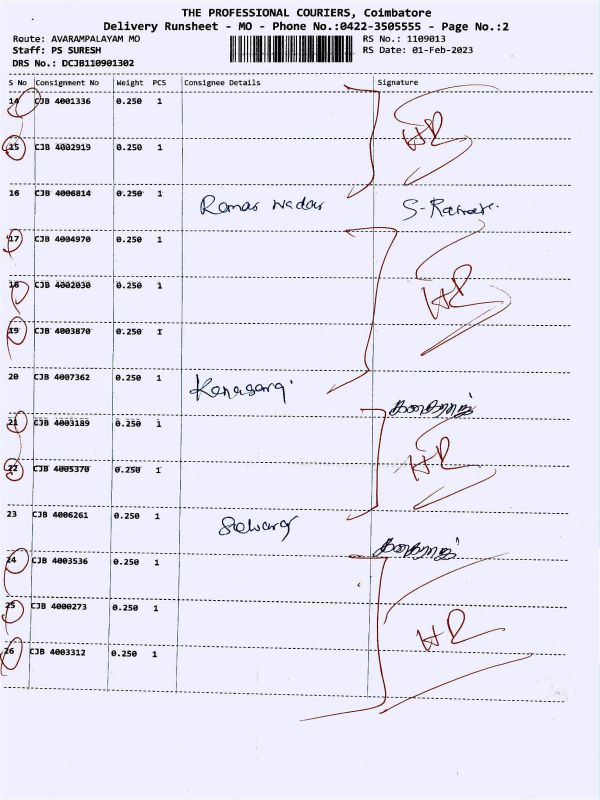 THE PROFESSIONAL COURIERS, Coimbatore
Delivery Runsheet - MO - Phone No.:0422-3505555 - Page No.:2
Route: AVARAMPALAYAM MO RS No.: 1109013
Staff: PS SURESH RS Date: 01-Feb-2023
DRS No.: DCJB110901302
S No Consignment No Weight PCS Consignee Details Signature
14 CJB 4001336 0.250 1
HD
15 CJB 4002919 0.250 1
16 CJB 4006814 0.250 1 Ramar nadar
17 CJB 4004970 0.250 1
18 CJB 4002030 0.250 1
HD
19 CJB 4003870 0.250 1
20 CJB 4007362 0.250 1
21 CJB 4003189 0.250 1
22 CJB 4005370 0.250 1 HD
23 CJB 4006261 0.250 1
24 CJB 4003536 0.250 1
25 CJB 4000273 0.250 1
HD
26 CJB 4003312 0.250 1